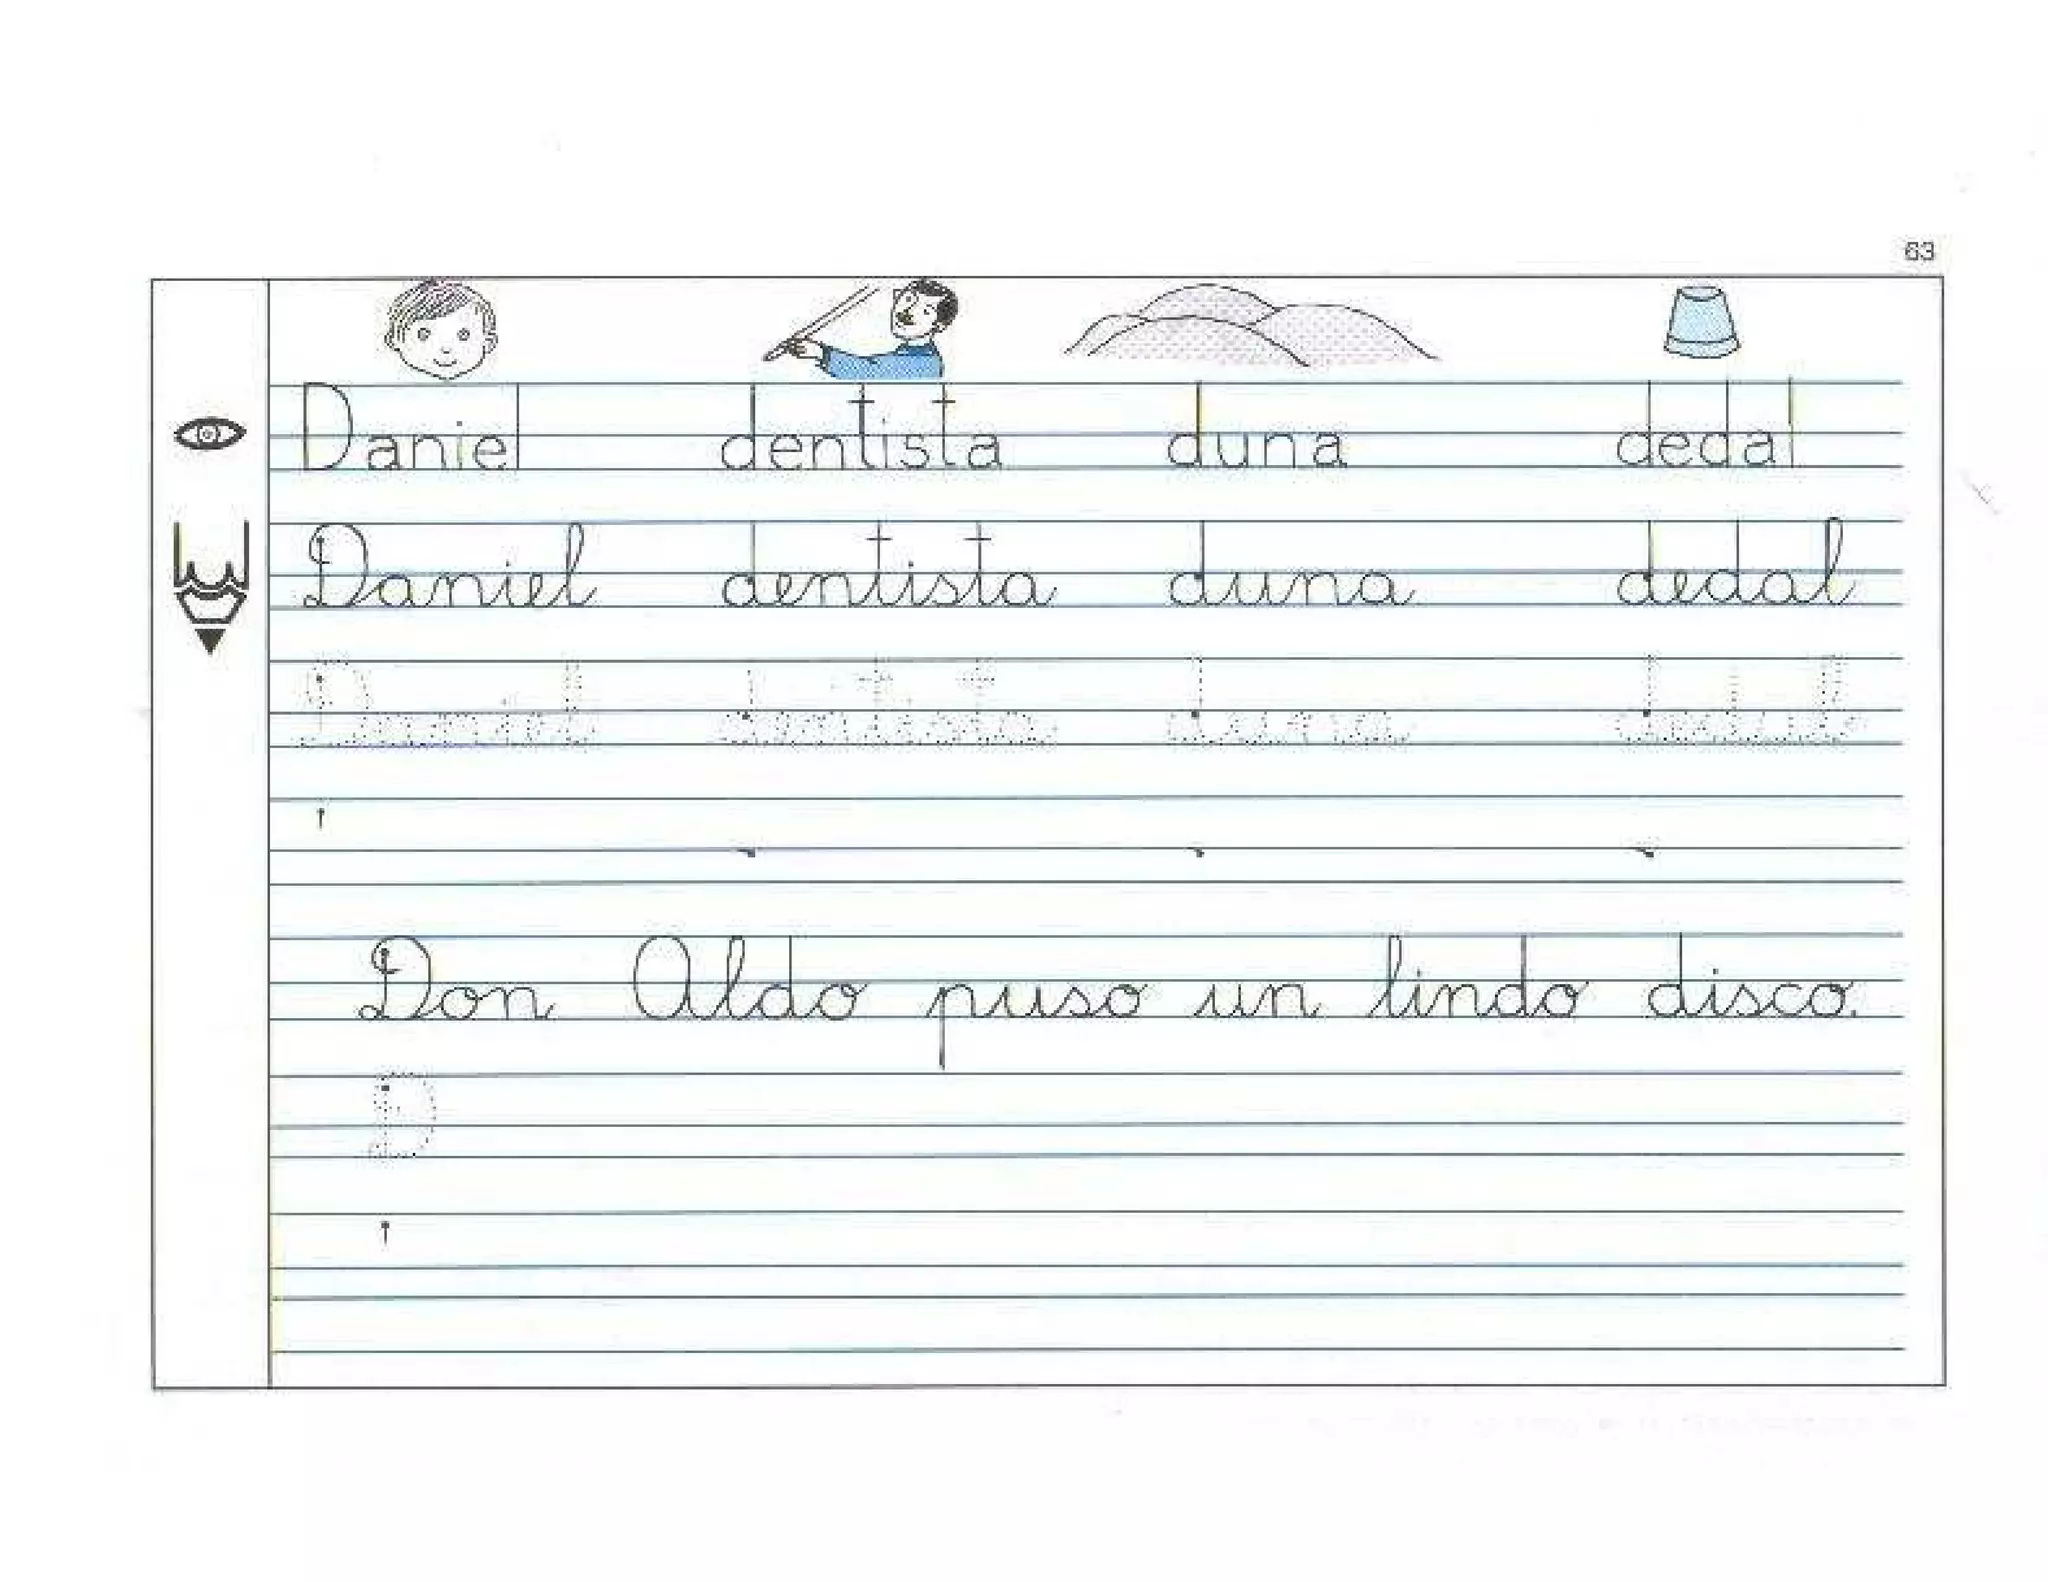 63
Daniel dentista duna dedal
Daniel dentista duna dedal
Daniel dentista duna dedal
Don Aldo puso un lindo disco.
D